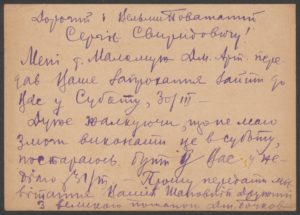 Дорогий і Вельми Поважаний
Сергію Спиридоновичу!
Мені т. Малолух Дм. Арт. пере
дав Ваше запрохання зайти до
Вас у Суботу, 30/III –
Дуже жалкуючи, що не маю
змоги виконати це в суботу,
постараюсь бути у Вас у не-
ділю 31/III. Прошу передати мій
вітання Вашій Шановній Дружині
З великою пошаною